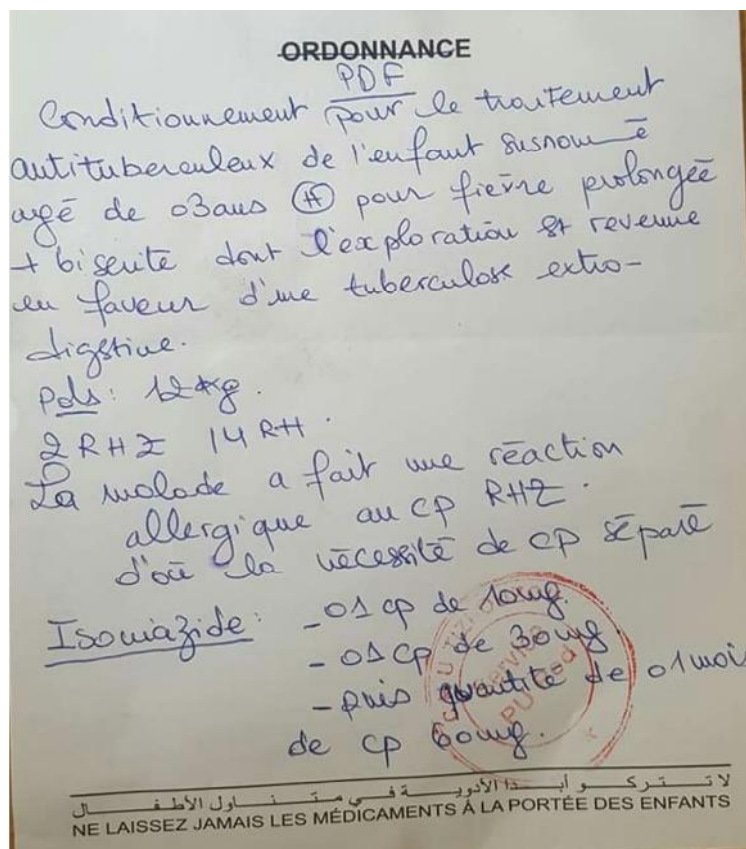 ORDONNANCE
PDF
Conditionnement pour le traitement
antituberculeux de l'enfant susnommé
agé de 03ans (H) pour fièvre prolongée
+ biserite dont l'exploration est revenue
en faveur d'une tuberculose extra-
digestive.
Pds: 12kg.
2 RHZ 14 RH.
La malade a fait une réaction
allergique au cp RHZ.
d'où la nécessité de cp séparé
Isoniazide: -01 cp de 10mg.
-01 cp de 30mg.
-puis quantité de 01 mois
de cp 60mg.
لا تتركوا أبدا الأدوية في متناول الأطفال
NE LAISSEZ JAMAIS LES MÉDICAMENTS À LA PORTÉE DES ENFANTS